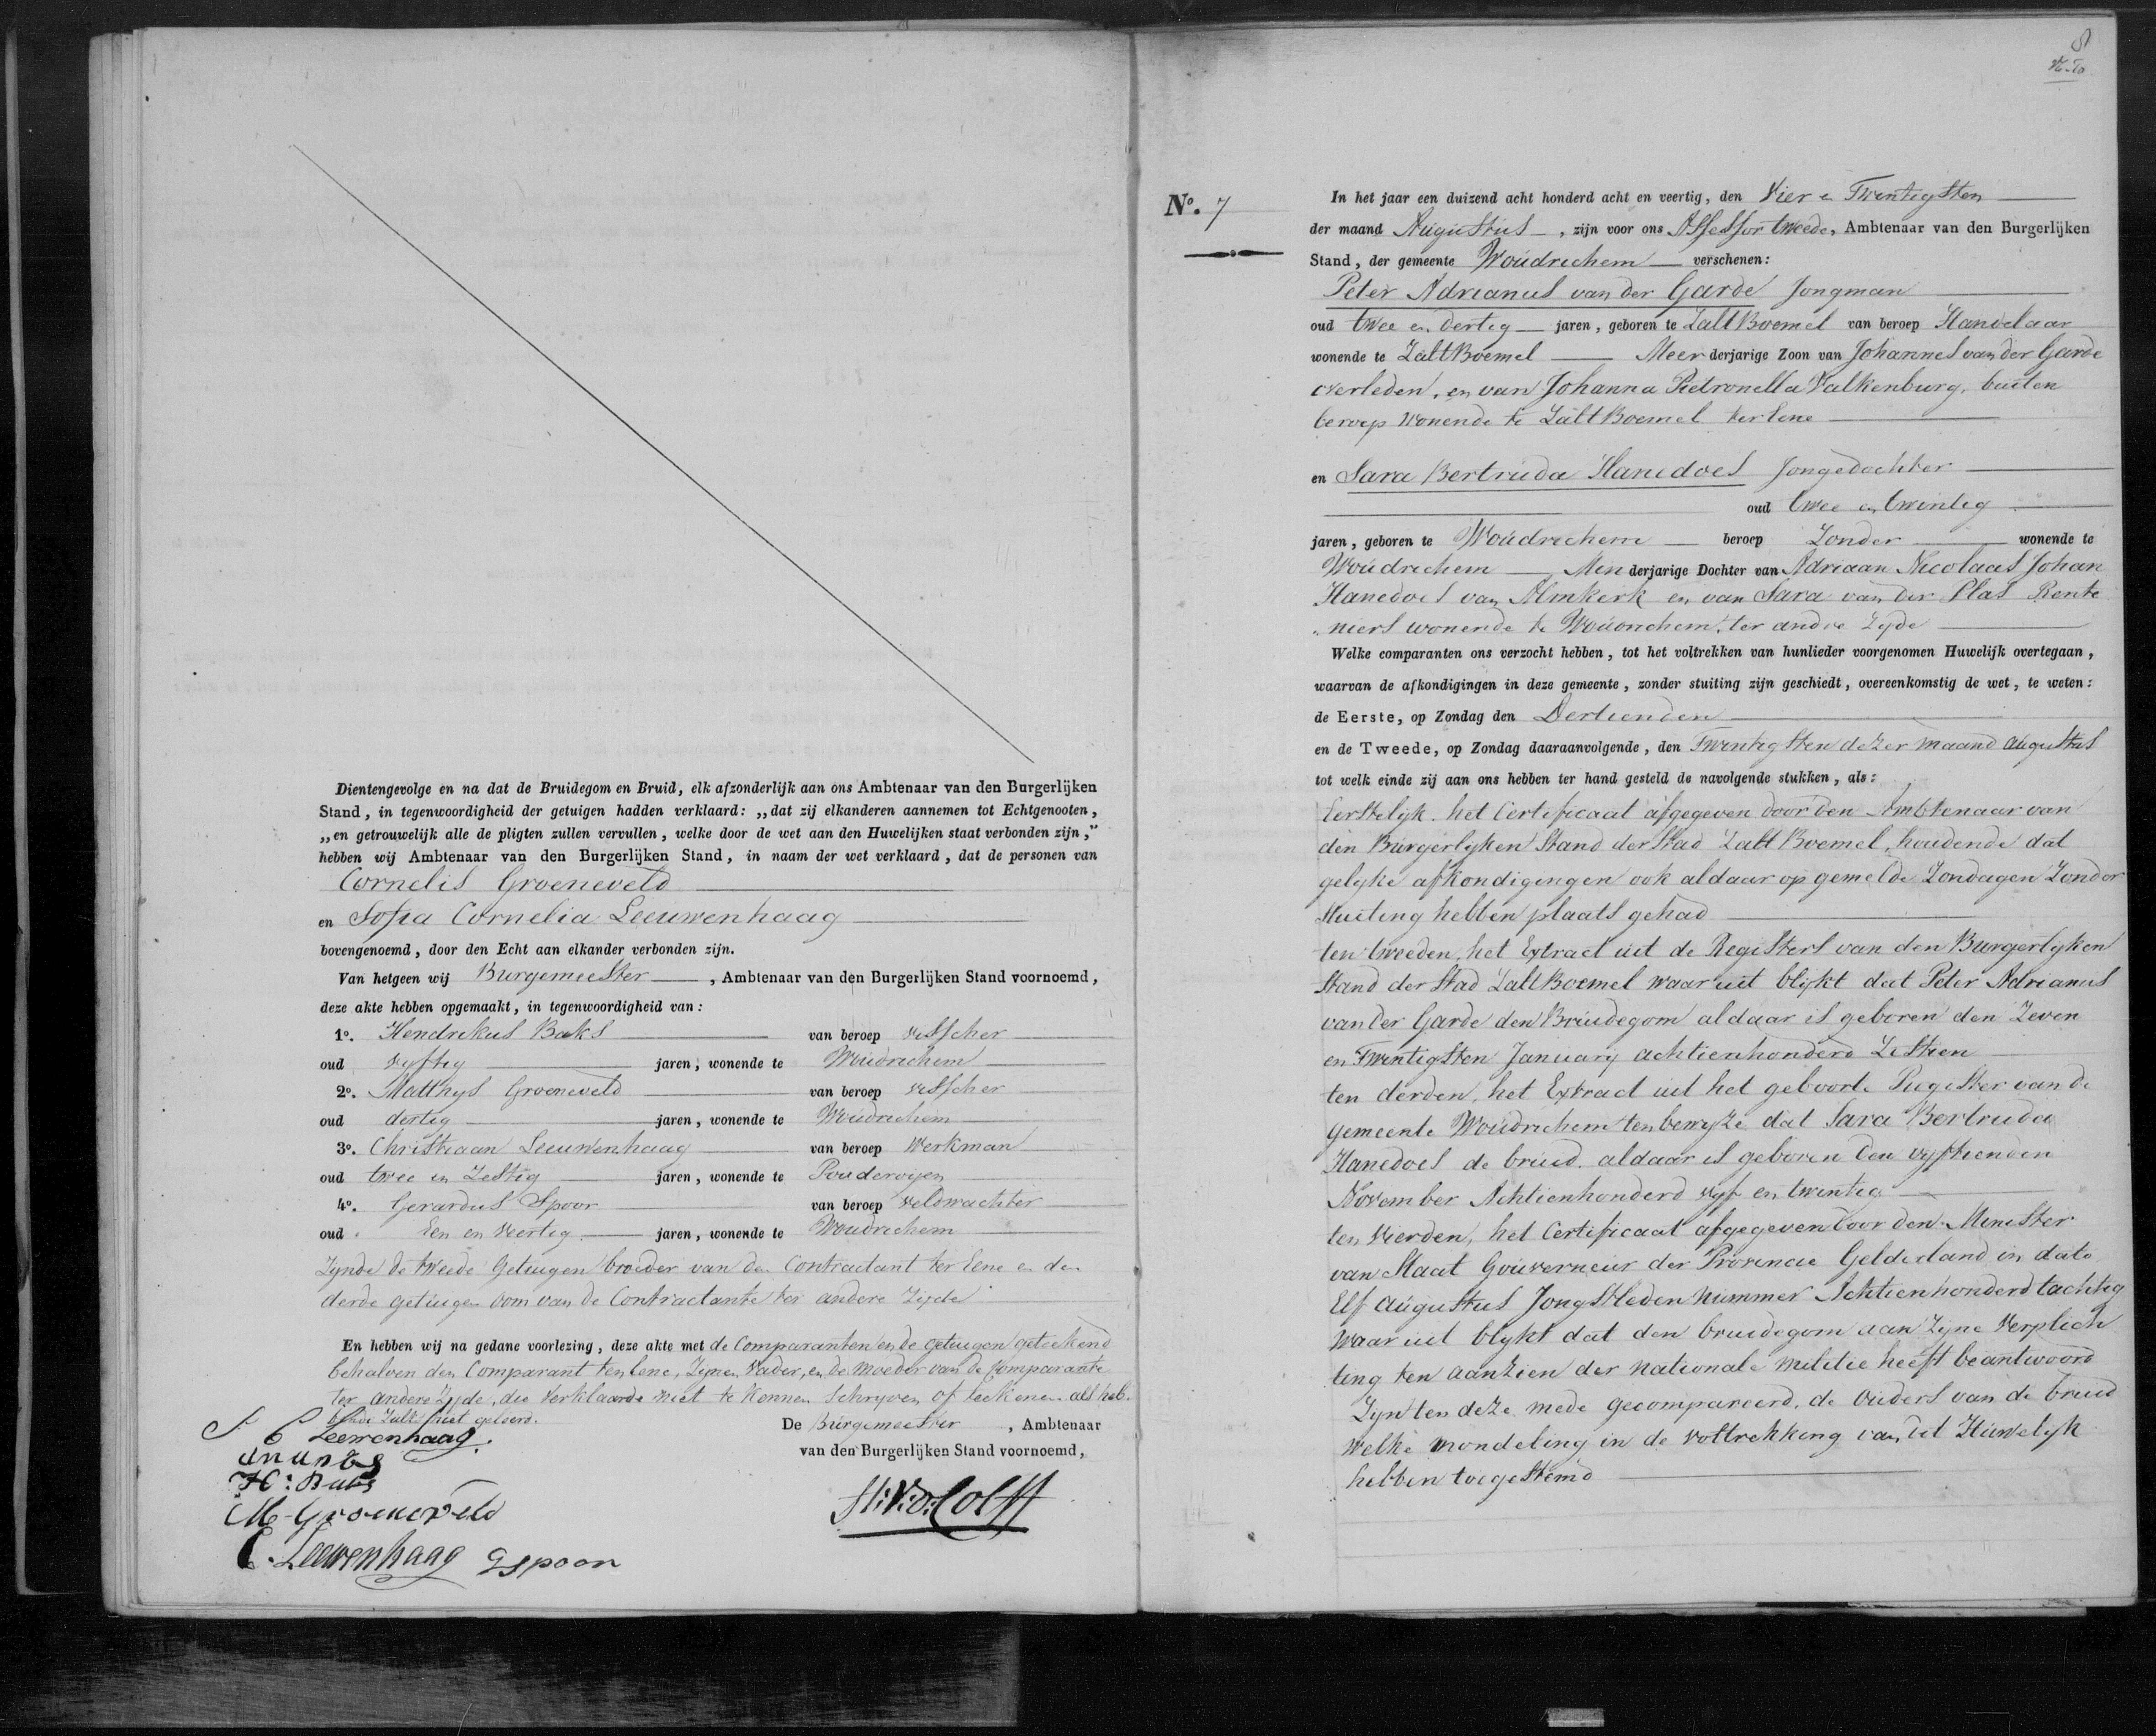 Dientengevolge en na dat de Bruidegom en Bruid, elk afzonderlijk aan ons Ambtenaar van den Burgerlijken
Stand, in tegenwoordigheid der getuigen hadden verklaard: „dat zij elkanderen aannemen tot Echtgenooten,
„en getrouwelijk alle de pligten zullen vervullen, welke door de wet aan den Huwelijken staat verbonden zijn,”
hebben wij Ambtenaar van den Burgerlijken Stand, in naam der wet verklaard, dat de personen van
Cornelis Groeneveld
en Sofia Cornelia Leeuwenhaag
bovengenoemd, door den Echt aan elkander verbonden zijn.
Van hetgeen wij Burgemeester, Ambtenaar van den Burgerlijken Stand voornoemd,
deze akte hebben opgemaakt, in tegenwoordigheid van:
1o. Hendrikus Baks van beroep visscher
oud vyftig jaren, wonende te Woudrichem
2o. Matthys Groeneveld van beroep visscher
oud dertig jaren, wonende te Woudrichem
3o. Christiaan Leeuwenhaag van beroep Werkman
oud twee en Zestig jaren, wonende te Pouderoyen
4o. Gerardus Spoor van beroep veldwachter
oud Een en Veertig jaren, wonende te Woudrichem
Zynde de tweede Getuigen broeder van den Contractant ter Eene en den
derde getuigen oom van de Contractante ter andere Zijde
En hebben wij na gedane voorlezing, deze akte met de Comparanten en de getuigen geteekend
behalven den Comparant ten eene, Zynen Vader, en de Moeder van de Comparante
ter andere Zyde, die verklaarde niet te kennen Schryven of teekenen als heb-
bende Zulks niet geleerd.
S C Leewenhaag.
H: Baks
M-Groeneveld
C. Leewenhaag G Spoor
De Burgemeester, Ambtenaar
van den Burgerlijken Stand voornoemd,
8
No. 7
In het jaar een duizend acht honderd acht en veertig, den Vier en Twintigsten
der maand Augustus, zijn voor ons Assessor tweede, Ambtenaar van den Burgerlijken
Stand, der gemeente Woudrichem verschenen:
Peter Adrianus van der Garde Jongman
oud twee en dertig jaren, geboren te ZaltBoemel van beroep Handelaar
wonende te ZaltBoemel Meerderjarige Zoon van Johannes van der Garde
overleden, en van Johanna Pietronella Valkenburg, buiten
beroep wonende te ZaltBoemel ter Eene
en Sara Bertruda Hanedoes Jongedochter
oud twee en twintig
jaren, geboren te Woudrichem beroep Zonder wonende te
Woudrichem Minderjarige Dochter van Adriaan Nicolaas Johan
Hanedoes van Almkerk en van Sara van der Plas Rente
niers wonende te Woudrichem, ter andre Zyde
Welke comparanten ons verzocht hebben, tot het voltrekken van hunlieder voorgenomen Huwelijk overtegaan,
waarvan de afkondigingen in deze gemeente, zonder stuiting zijn geschiedt, overeenkomstig de wet, te weten:
de Eerste, op Zondag den Dertienden
en de Tweede, op Zondag daaraanvolgende, den Twintigsten dezer maand Augustus
tot welk einde zij aan ons hebben ter hand gesteld de navolgende stukken, als:
Eerstelyk. het Certificaat afgegeven door den Ambtenaar van
den Burgerlyken Stand der Stad Zalt Boemel, houdende dat
gelyke afkondigingen ook aldaar op gemelde Zondagen Zonder
Stuiting hebben plaats gehad
ten tweeden, het Extract uit de Registers van den Burgerlyken
Stand der Stad ZaltBoemel waar uit blykt dat Peter Adrianus
van der Garde den Bruidegom aldaar is geboren den Zeven
en Twintigsten January achtienhonderd Zestien
ten derden, het Extract uit het geboorte Register van de
gemeente Woudrichem ten bewyze dat Sara Bertruda
Hanedoes de bruid. aldaar is geboren den vyftienden
November Achtienhonderd vyf en twintig
ten vierden, het Certificaat afgegeven door den Minister
van Staat Gouverneur der Provincie Gelderland in dato
Elf Augustus Jongstleden nummer Achtienhonderd tachtig
waar uit blykt dat den bruidegom aan Zyne verplich
ting ten aanzien der nationale militie heeft beantwoord
Zyn ten deze mede gecompareerd, de Ouders van de bruid
welke mondeling in de voltrekking van dit Huwelyk
hebben toegestemd